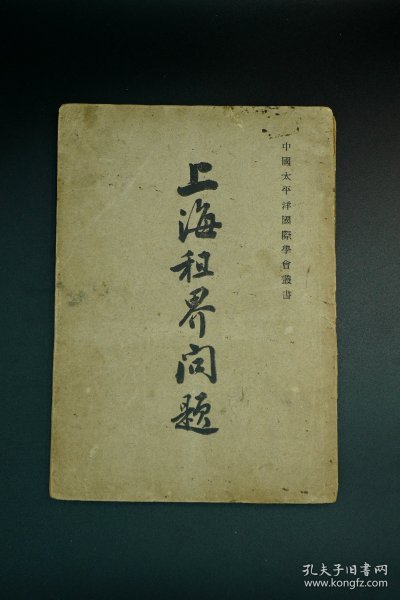 中國太平洋國際學會叢書
上海租界問題
孔夫子旧书网
www.kongfz.com